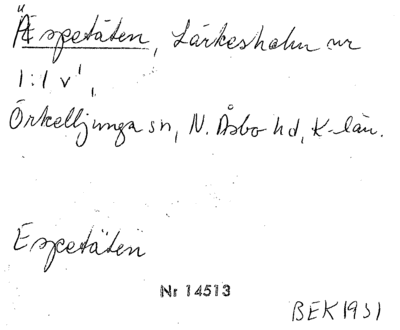 Äspetäten, Lärkesholm nr
1:1 v¹,
Örkelljunga sn, N. Åsbo hd, K-län.
Espetäten
Nr 14513
BEK 1931